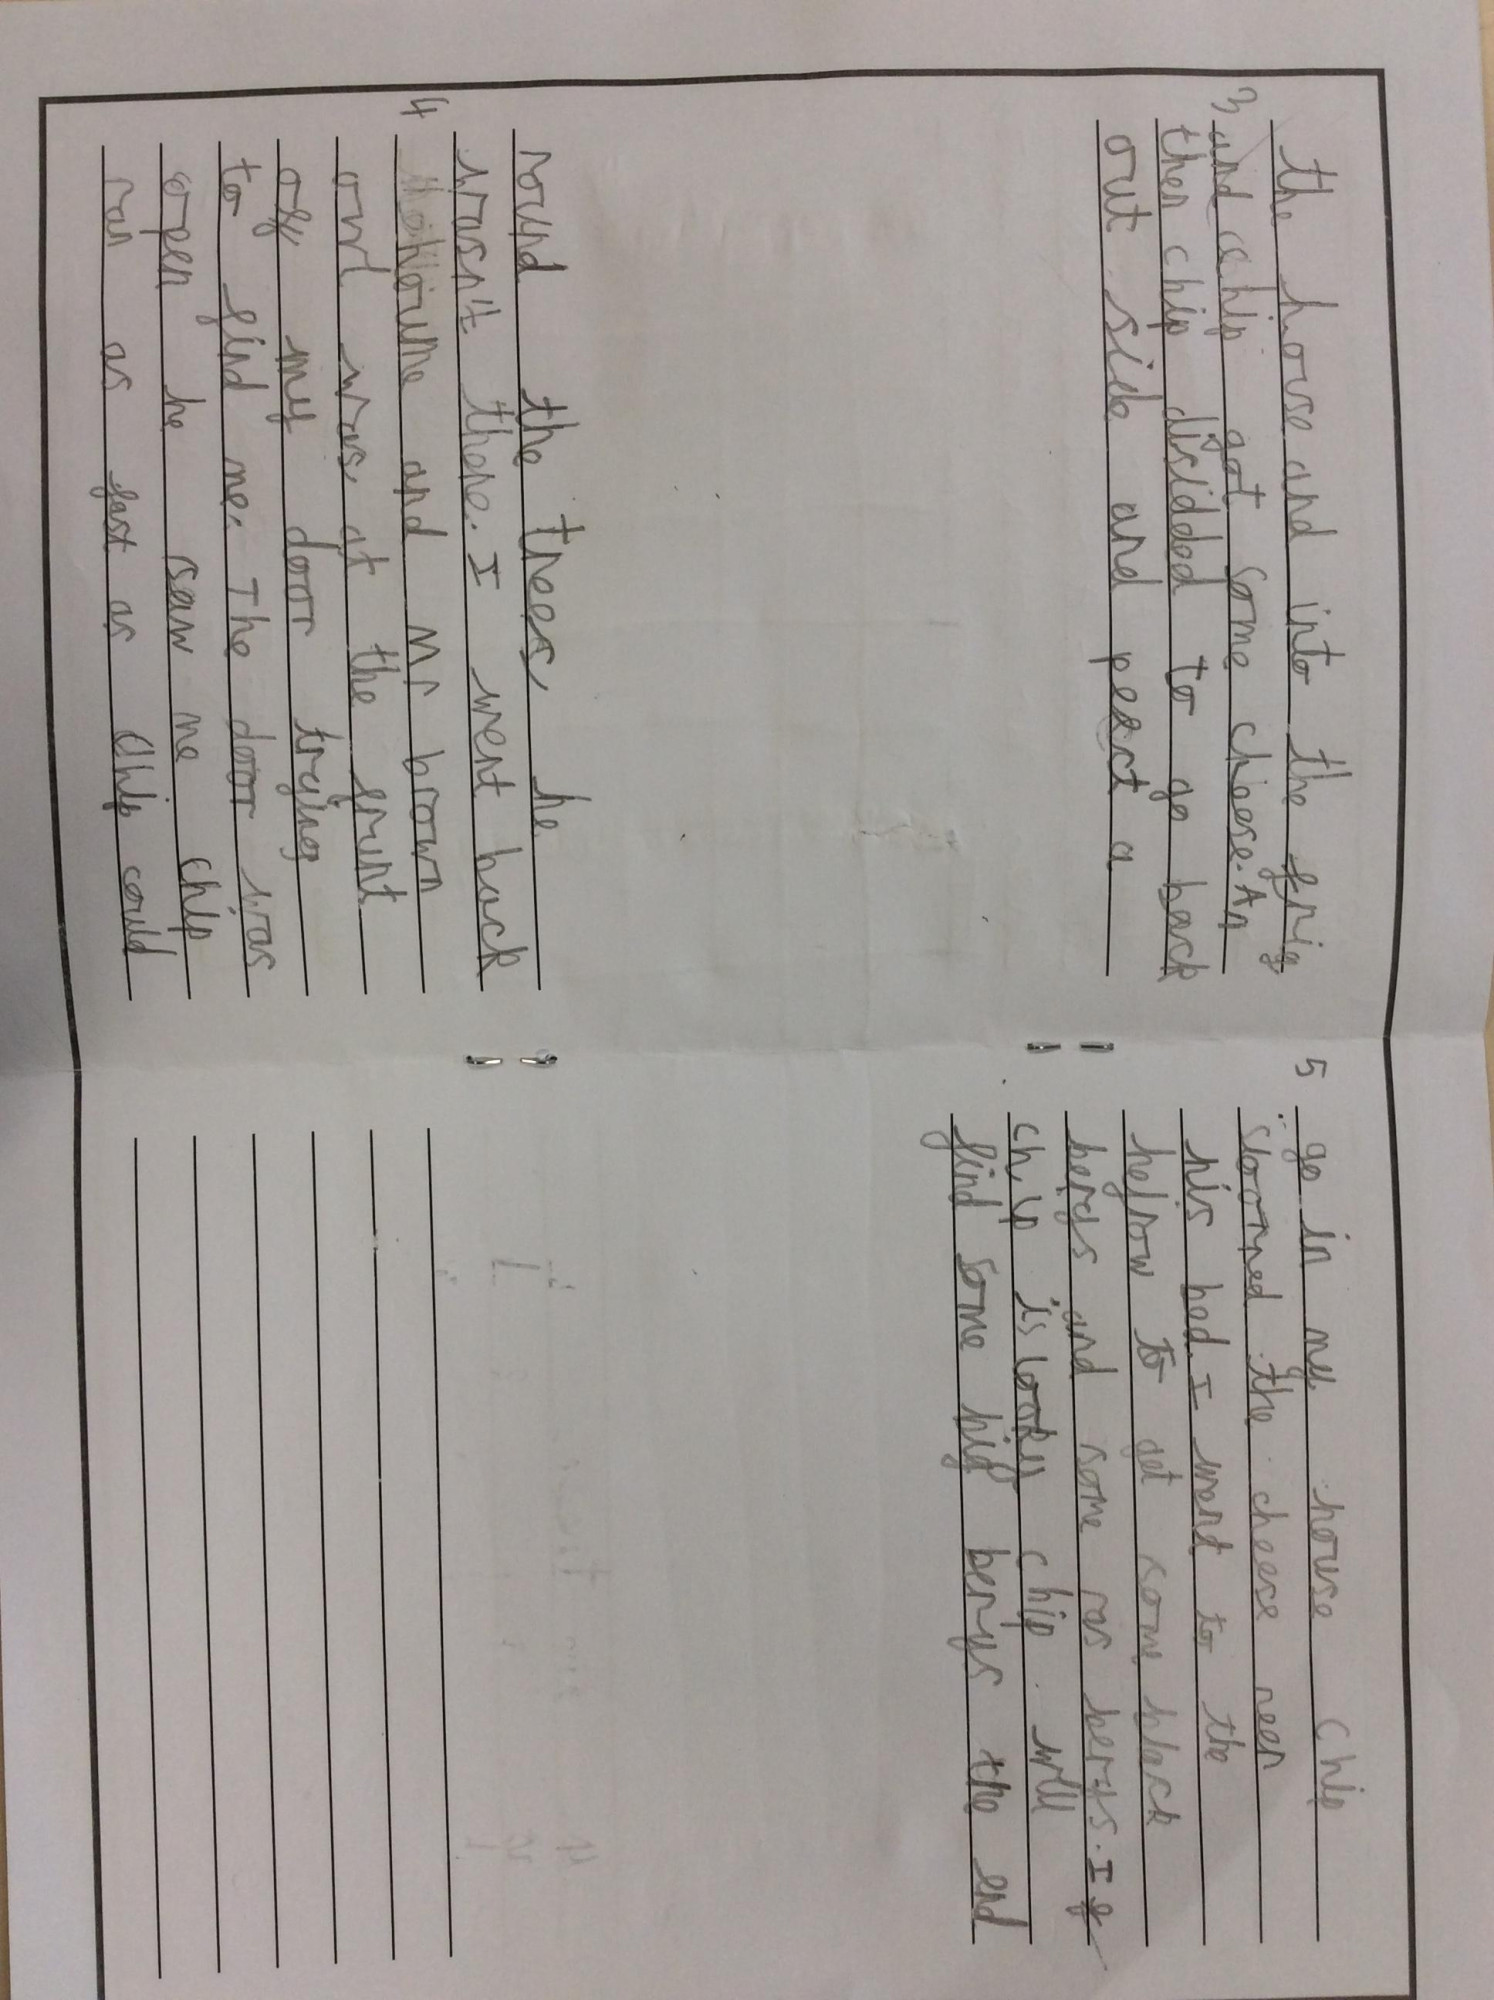 3
the house and into the frig
and chip got some cheese. An
then chip disidded to go back
out side and peect a
4
round the trees, he
wasn't there. I went back
and Mr brown
owl was, at the frunt
off my door trying
to find me. The door was
open he saw me Chip
ran as fast as Chip could
5
go in my house Chip
the cheese neer
his bed. I went to the
hejrow to get some black
berys and some ras berys. If
chip is looky chip will
find some big berys the end